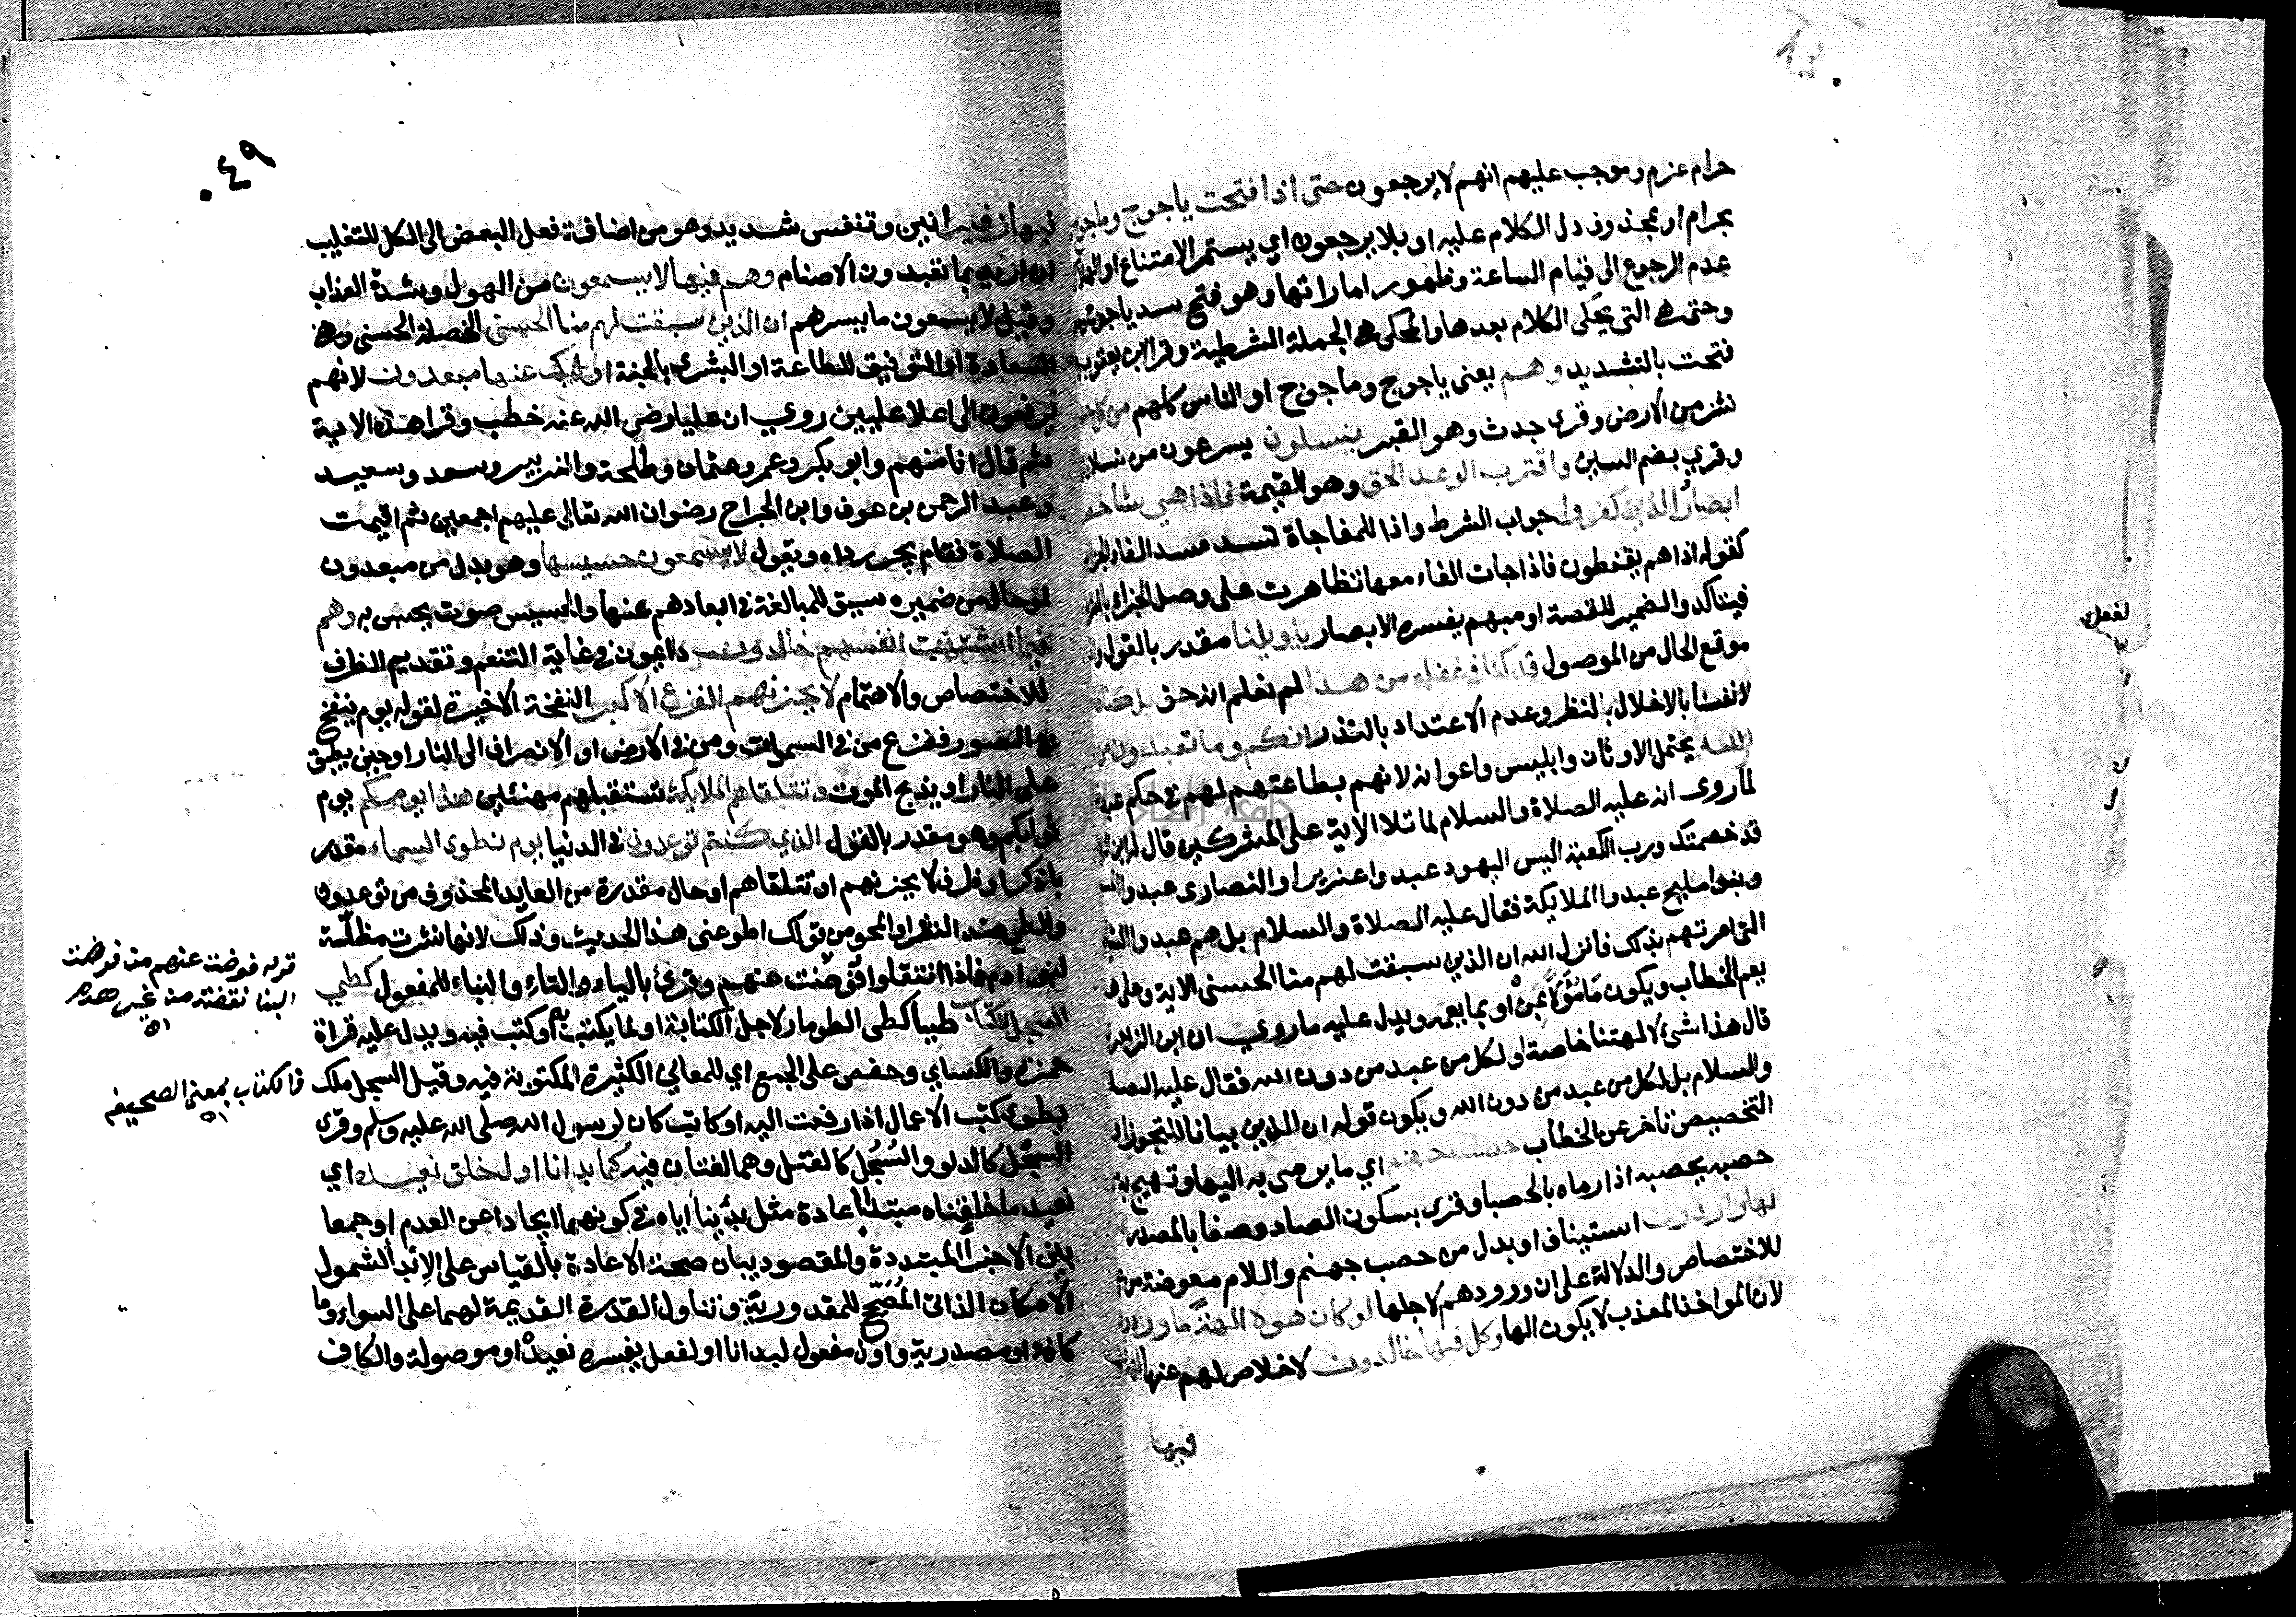 ٤٨
حرام عزم وموجب عليهم انهم لا يرجعون حتى اذا فتحت ياجوج وماجوج
بحرام او بمحذوف دل الكلام عليه او بلا يرجعون اي يستمر الامتناع او الهلاك
عدم الرجوع الى قيام الساعة وظهور اماراتها وهو فتح سد ياجوج
وحتى هي التي يحكى الكلام بعدها والمحكى هي الجملة الشرطية وقرا ابن عامر ويعقوب
فتحت بالتشديد وهم يعنى ياجوج وماجوج او الناس كلهم من كل حدب
نشز من الارض وقرى جدث وهو القبر ينسلون يسرعون من نسلان
وقرى بضم السين واقترب الوعد الحق وهو القيمة فاذا هي شاخصة
ابصار الذين كفروا جواب الشرط واذا للمفاجاة تسد مسد الفاء الجزائية
كقوله اذا هم يقنطون فاذا جات الفاء معها تظاهرت على وصل الجزاء بالشرط
فيتاكد والضمير للقصة او مبهم يفسره الابصار يا ويلنا مقدر بالقول
موقع الحال من الموصول قد كنا في غفلة من هذا لم نعلم انه حق بل كنا
لانفسنا بالاخلال بالنظر وعدم الاعتداد بالنذر انكم وما تعبدون من
الله يحتمل الاوثان وابليس واعوانه لانهم بطاعتهم لهم في حكم عبدتهم
لما روى انه عليه الصلاة والسلام لما تلا الاية على المشركين قال له ابن
قد خصمتك ورب الكعبة اليس اليهود عبدوا عزيرا والنصارى عبدوا
وبنوا مليح عبدوا الملايكة فقال عليه الصلاة والسلام بل هم عبدوا
التي امرتهم بذلك فانزل الله ان الذين سبقت لهم منا الحسنى الاية وعلى هذا
يعم الخطاب ويكون ما مؤولا بمن او بما يعمه ويدل عليه ما روي ان ابن الزبعرى
قال هذا شئ لالهتنا خاصة او لكل من عبد من دون الله فقال عليه الصلاة
والسلام بل لكل من عبد من دون الله ويكون قوله ان الذين بيانا للتجوز او
التخصيص تاخر عن الخطاب حصب جهنم اي ما يرمى به اليها وتهيج به
حصبه يحصبه اذا رماه بالحصبا وقرى بسكون الصاد وصفا بالمصدر
لها واردون استيناف او بدل من حصب جهنم واللام معوضة من
للاختصاص والدلالة على ان ورودهم لاجلها لو كان هولا الهة ما وردوها
لان المواخذ المعذب لا يكون الها وكل فيها خالدون لا خلاص لهم عنها
فيها
٤٩
فيها زفير انين وتنفس شديد وهو من اضافة فعل البعض الى الكل للتغليب
ان اريد بما تعبدون الاصنام وهم فيها لا يسمعون من الهول وشدة العذاب
وقيل لا يسمعون ما يسرهم ان الذين سبقت لهم منا الحسنى الخصلة الحسنى وهي
السعادة او التوفيق للطاعة او البشرى بالجنة اولئك عنها مبعدون لانهم
يرفعون الى اعلا عليين روي ان عليا رضى الله عنه خطب وقرا هذه الاية
ثم قال انا منهم وابو بكر وعمر وعثمان وطلحة والزبير وسعد وسعيد
وعبد الرحمن بن عوف وابن الجراح رضوان الله تعالى عليهم اجمعين ثم اقيمت
الصلاة فقام يجر رداه ويقول لا يسمعون حسيسها وهو بدل من مبعدون
او حال من ضميره سيق للمبالغة في ابعادهم عنها والحسيس صوت يحس به وهم
فيما اشتهت انفسهم خالدون دائمون في غاية التنعم وتقديم الظرف
للاختصاص والاهتمام لا يحزنهم الفزع الاكبر النفخة الاخيرة لقوله يوم ينفخ
في الصور ففزع من في السموات ومن في الارض او الانصراف الى النار او حين يطبق
على النار او يذبح الموت وتتلقاهم الملايكة تستقبلهم مهنئين هذا يومكم يوم
ثوابكم وهو مقدر بالقول الذي كنتم توعدون في الدنيا يوم نطوى السماء مقدر
باذكر او ظرف لا يحزنهم او تتلقاهم او حال مقدرة من العايد المحذوف من توعدون
والطي ضد النشر او المحو من قولك اطو عنى هذا الحديث وذلك لانها نشرت مظلة
لبنى ادم فاذا انتقلوا قوضت عنهم وقرئ بالياء والتاء والبناء للمفعول كطي
السجل للكتاب طيا كطى الطومار لاجل الكتابة او لما يكتب او كتب فيه ويدل عليه قراة
حمزة والكسائي وحفص على الجمع اي للمعاني الكثيرة المكتوبة فيه وقيل السجل ملك
يطوى كتب الاعمال اذا رفعت اليه او كاتب كان لرسول الله صلى الله عليه وسلم وقرى
السجل كالدلو والسجل كالعتل وهما لغتان فيه كما بدانا اول خلق نعيده اي
نعيد ما خلقناه مبتدئا اعادة مثل بدئنا اياه في كونهما ايجادا عن العدم او جمعا
بين الاجزاء المبتددة والمقصود بيان صحة الاعادة بالقياس على الابداء لشمول
الامكان الذاتى المصحح للمقدورية وتناول القدرة القديمة لهما على السواء وما
كافة او مصدرية واول مفعول لبدانا او لفعل يفسره نعيده او موصولة والكاف
قوله قوضت عنهم من قوضت
البنا نقضته من غير هدم
اه
فالكتاب بمعنى الصحيفه
اه